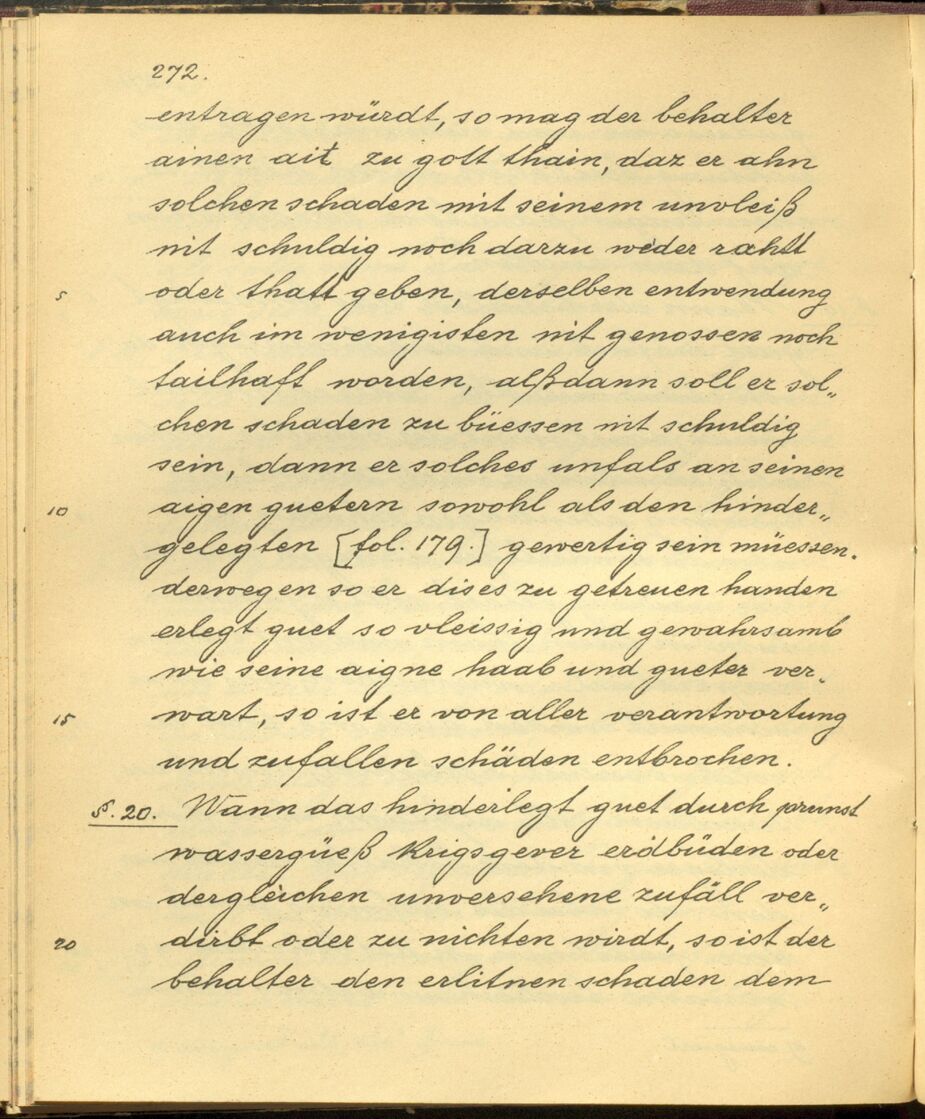 272.
entragen würdt, so mag der behalter
ainen ait zu gott thain, daz er ahn
solchen schaden mit seinem unvleiß
nit schuldig noch darzu weder rahtt
5 oder thatt geben, derselben entwendung
auch im wenigisten nit genossen noch
tailhaft worden, alßdann soll er sol„
chen schaden zu büessen nit schuldig
sein, dann er solches unfals an seinen
10 aigen guetern sowohl als den hinder„
gelegten [fol. 179.] gewertig sein müessen.
derwegen so er dises zu getreuen handen
erlegt guet so vleissig und gewahrsamb
wie seine aigne haab und gueter ver„
15 wart, so ist er von aller verantwortung
und zufallen schäden entbrochen.
§. 20. Wann das hinderlegt guet durch prunst
wassergüeß krigsgever erdbüden oder
dergleichen unversehene zufäll ver„
20 dirbt oder zu nichten wirdt, so ist der
behalter den erlitnen schaden dem